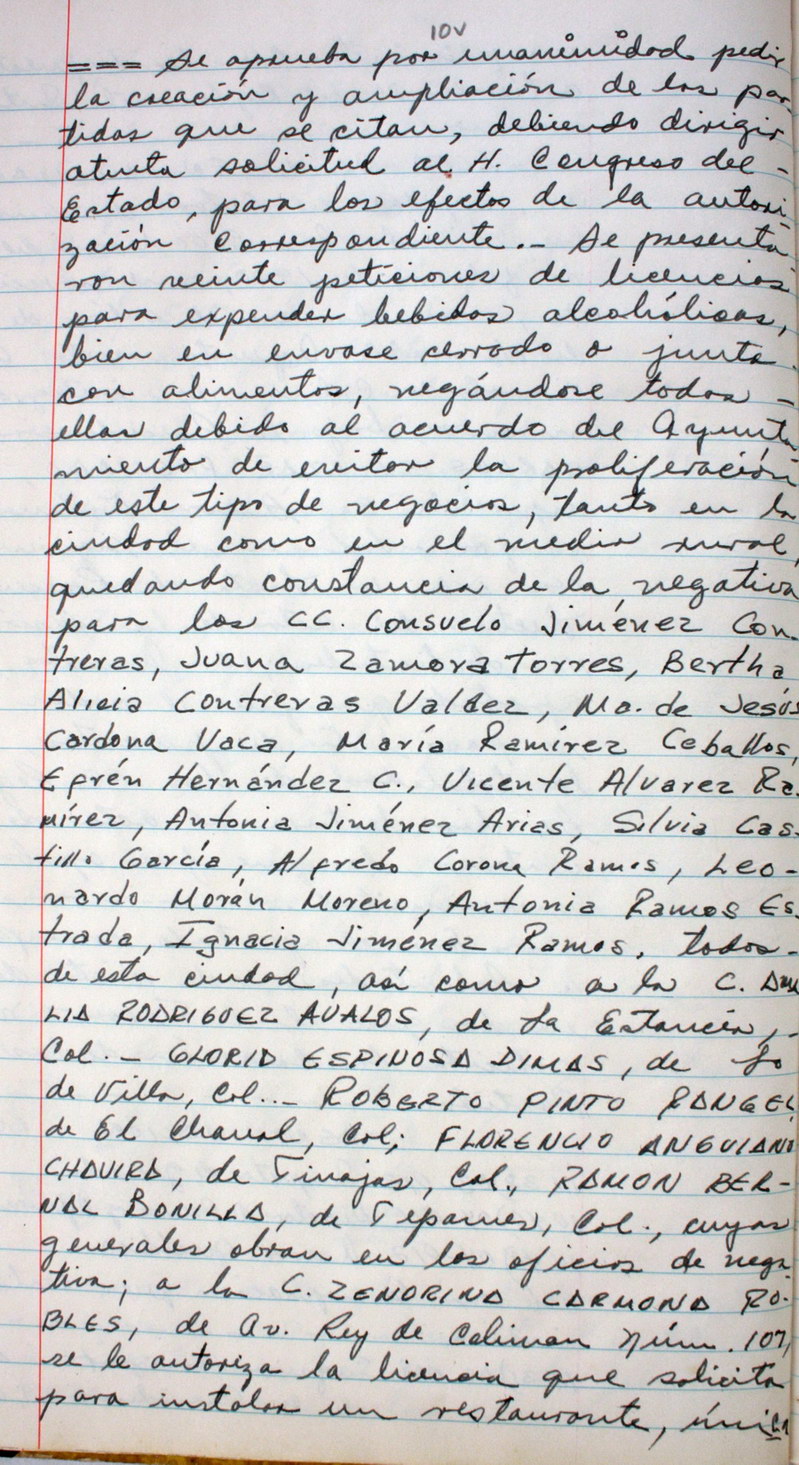 10v
=== Se aprueba por unanimidad pedir
la creación y ampliación de las par-
tidas que se citan, debiendo dirigir
atenta solicitud al H. Congreso del -
Estado, para los efectos de la autori-
zación correspondiente.- Se presenta
ron veinte peticiones de licencias
para expender bebidas alcohólicas,
bien en envase cerrado o junto
con alimentos, negándose todas -
ellas debido al acuerdo del Ayunta
miento de evitar la proliferación
de este tipo de negocios, tanto en la
ciudad como en el medio rural,
quedando constancia de la negativa
para los CC. Consuelo Jiménez Con-
treras, Juana Zamora Torres, Bertha
Alicia Contreras Valdez, Ma. de Jesús
Cardona Vaca, María Ramírez Ceballos,
Efrén Hernández C., Vicente Alvarez Ra-
mírez, Antonia Jiménez Arias, Silvia Cas-
tillo García, Alfredo Corona Ramos, Leo-
nardo Morán Moreno, Antonia Ramos Es-
trada, Ignacia Jiménez Ramos, todos-
de esta ciudad, así como a la C.
RODRIGUEZ AVALOS, de la Estancia,-
Col.- GLORIA ESPINOSA DIMAS, de
de Villa, Col..- ROBERTO PINTO RANGEL,
de El Chanal, Col; FLORENCIO ANGUIANO
CHAVIRA, de Tinajas, Col., RAMON BER-
NAL BONILLA, de Tepames, Col., cuyas
generales obran en los oficios de nega
tiva; a la C. ZENORINA CARMONA RO-
BLES, de Av. Rey de Coliman núm. 107,
se le autoriza la licencia que solicita
para instalar un restaurante, única